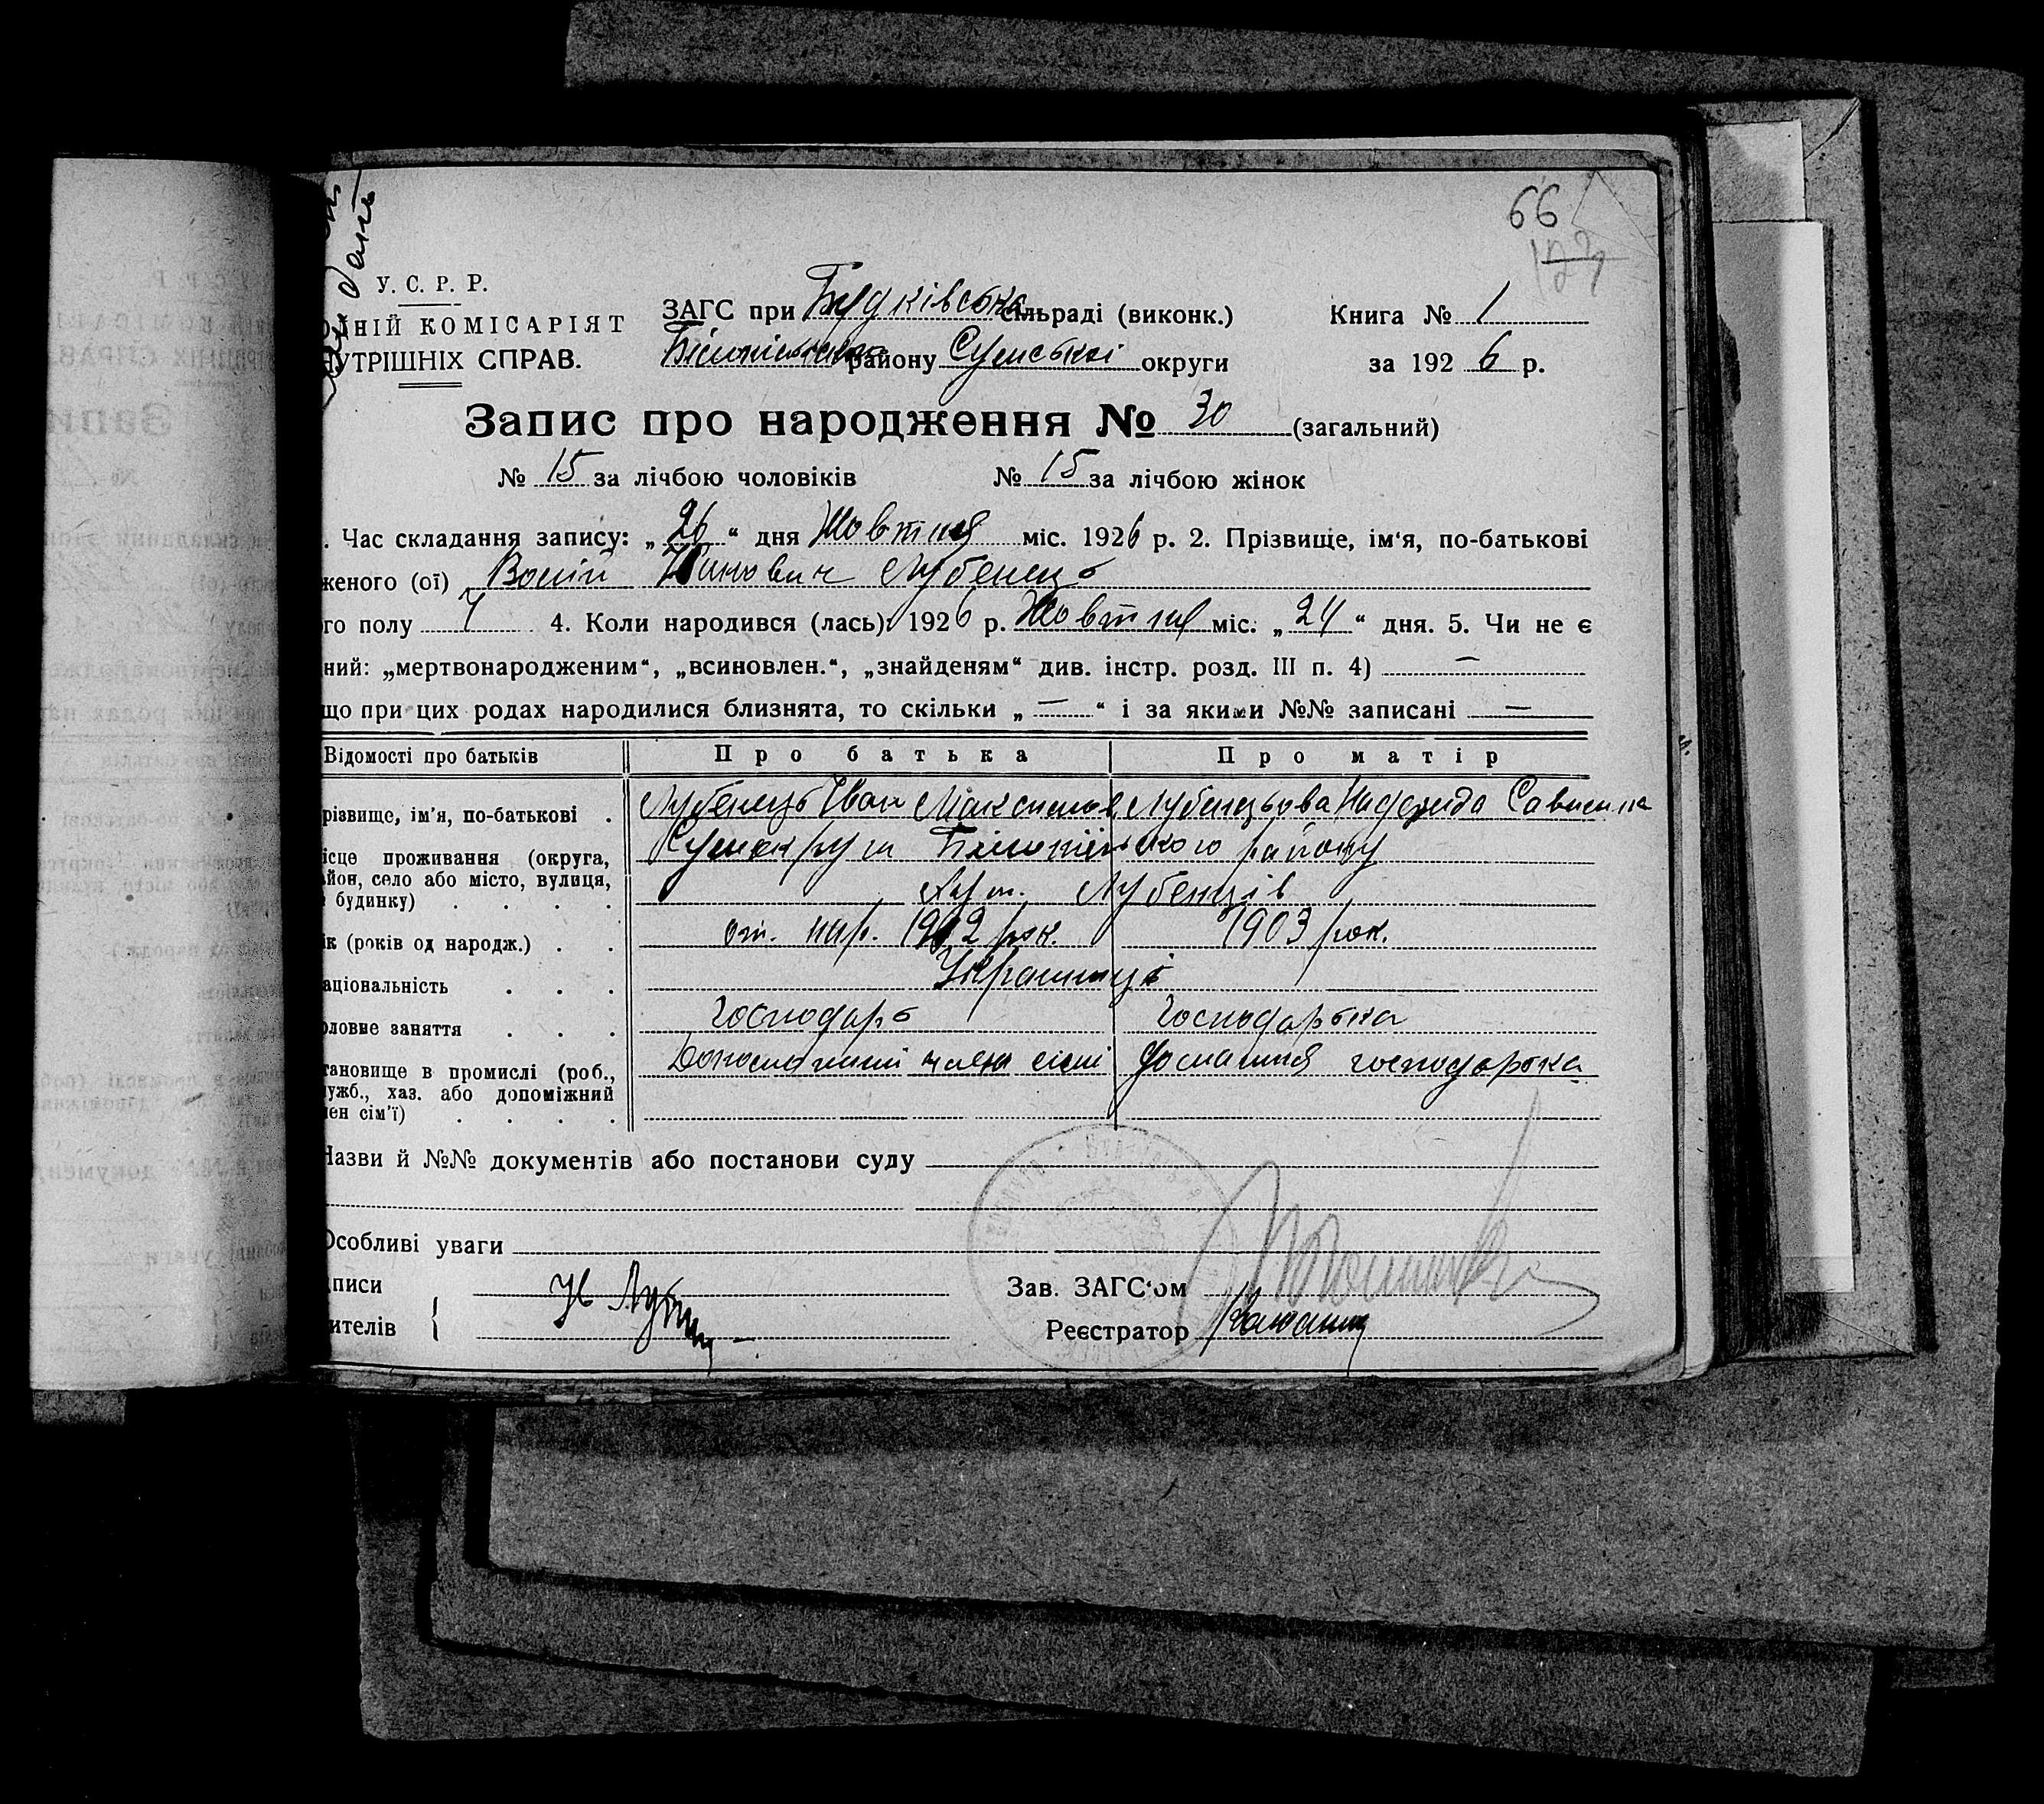 66
У. С. Р. Р.
ДНІЙ КОМІСАРІЯТ
УТРІШНІХ СПРАВ.
ЗАГС при Будківська сільраді (виконк.)
району Сумської округи
Книга № 1
за 1926 р.
Запис про народження № 30 (загальний)
№ 15 за лічбою чоловіків № 15 за лічбою жінок
. Час складання запису: „26“ дня Жовтня міс. 1926 р. 2. Прізвище, ім‘я, по-батькові
женого (ої) Іванович Лубенець
го полу Ч 4. Коли народився (лась) 1926 р. Жовтня міс. „24“ дня. 5. Чи не є
ний: „мертвонародженим“, „всиновлен.“, „знайденям“ див. інстр. розд. III п. 4) —
що при цих родах народилися близнята, то скільки „—“ і за якими №№ записані —
Відомості про батьків Про батька Про матір
різвище, ім‘я, по-батькові . Лубенець Іван Максимов Лубенцьова Надежда
ісце проживання (округа, Сумокруги Білопільського району
йон, село або місто, вулиця,
будинку) . . . . Хут. Лубенців
ік (років од народж.) . . от. нар. 1902 рок. 1903 рок.
аціональність . . . Українці
оловне заняття . . . Господарь Господарька
тановище в промислі (роб., член сімї домашня господарька
ужб., хаз. або допоміжний
лен сім‘ї) . . . .
Назви й №№ документів або постанови суду
Особливі уваги
дписи
ителів
Зав. ЗАГС‘ом
Реєстратор